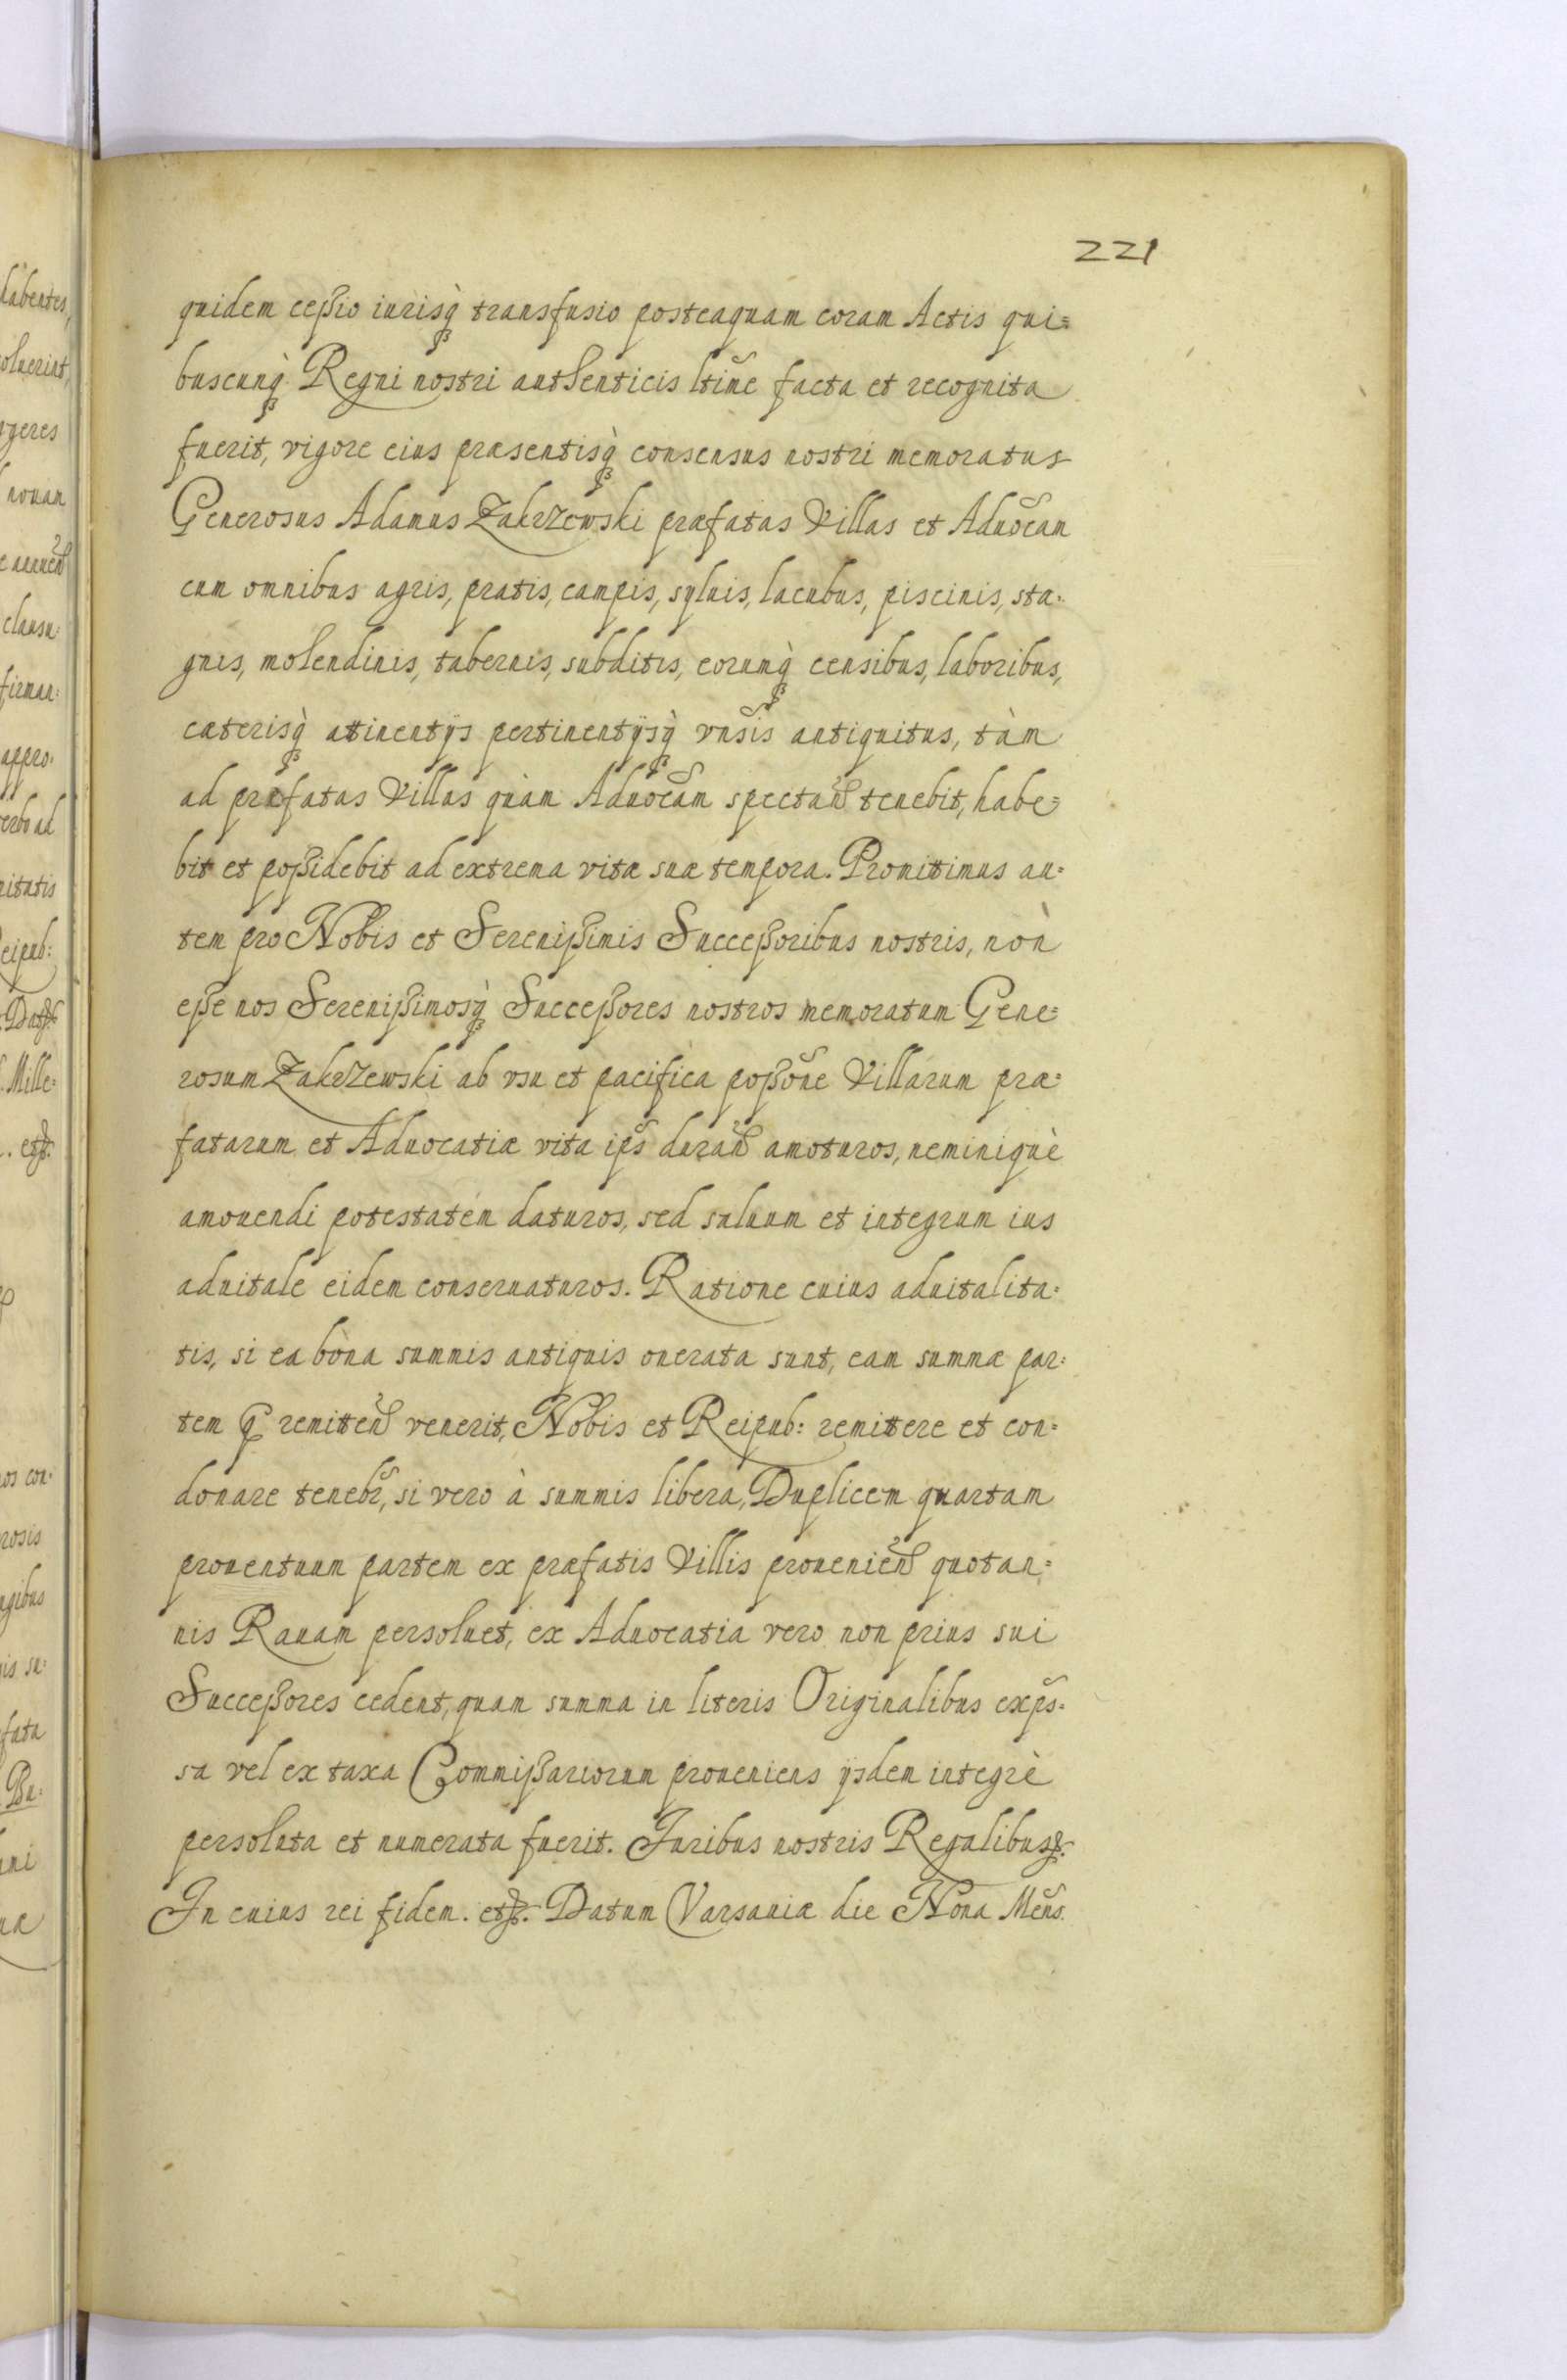 221
quidem ceßio iurisq̀ transfusio posteaquam coram Actis qui=
buscunq̀ Regni nostri authenticis ltĩme facta et recognita
fuerit, vigore eius præsentisq̀ consensus nostri memoratus
Generosus Adamus Zakrzewski præfatas Villas et Aduõcam
cum omnibus agris, pratis, campis, syluis, lacubus, piscinis, sta=
gnis, molendinis, tabernis, subditis, eorumq̀ censibus, laboribus,
cæterisq̀ attinentijs pertinentijsq̀ vñsis antiquitus, tàm
ad præfatas Villas quàm Aduocãm spectañ tenebit, habe=
bit et poßidebit ad extrema vitæ suæ tempora. Promittimus au=
tem pro Nobis et Sereníßimis Succeßoribus nostris, nòn
eße nos Sereníßimosq̀ Succeßores nostros memoratum Gene=
rosum Zakrzewski ab vsu et pacifica poßõne Villarum præ=
fatarum et Aduocatiæ vita ips̃ durañ amoturos, neminiquè
amouendi potestatem daturos, sed saluum et integrum ius
aduitale eidem conseruaturos. Ratione cuius aduitalita=
tis, si ea bona summis antiquis onerata sunt, eam summæ par=
tem q̃ remitteñ venerit, Nobis et Reipub: remittere et con=
donare tenebr̃, si vero à summis libera, Duplicem quartam
prouentuum partem ex præfatis Villis prouenieñ quotan=
nis Rauam persoluet, ex Aduocatia vero non prius sui
Succeßores cedent, quam summa in literis Originalibus exp̃s=
sa vel ex taxa Commißariorum proueniens ijsdem integrè
persoluta et numerata fuerit. Juribus nostris Regalibus &.
In cuius rei fidem. etc. Datum Varsauiæ die Nona Meñs.